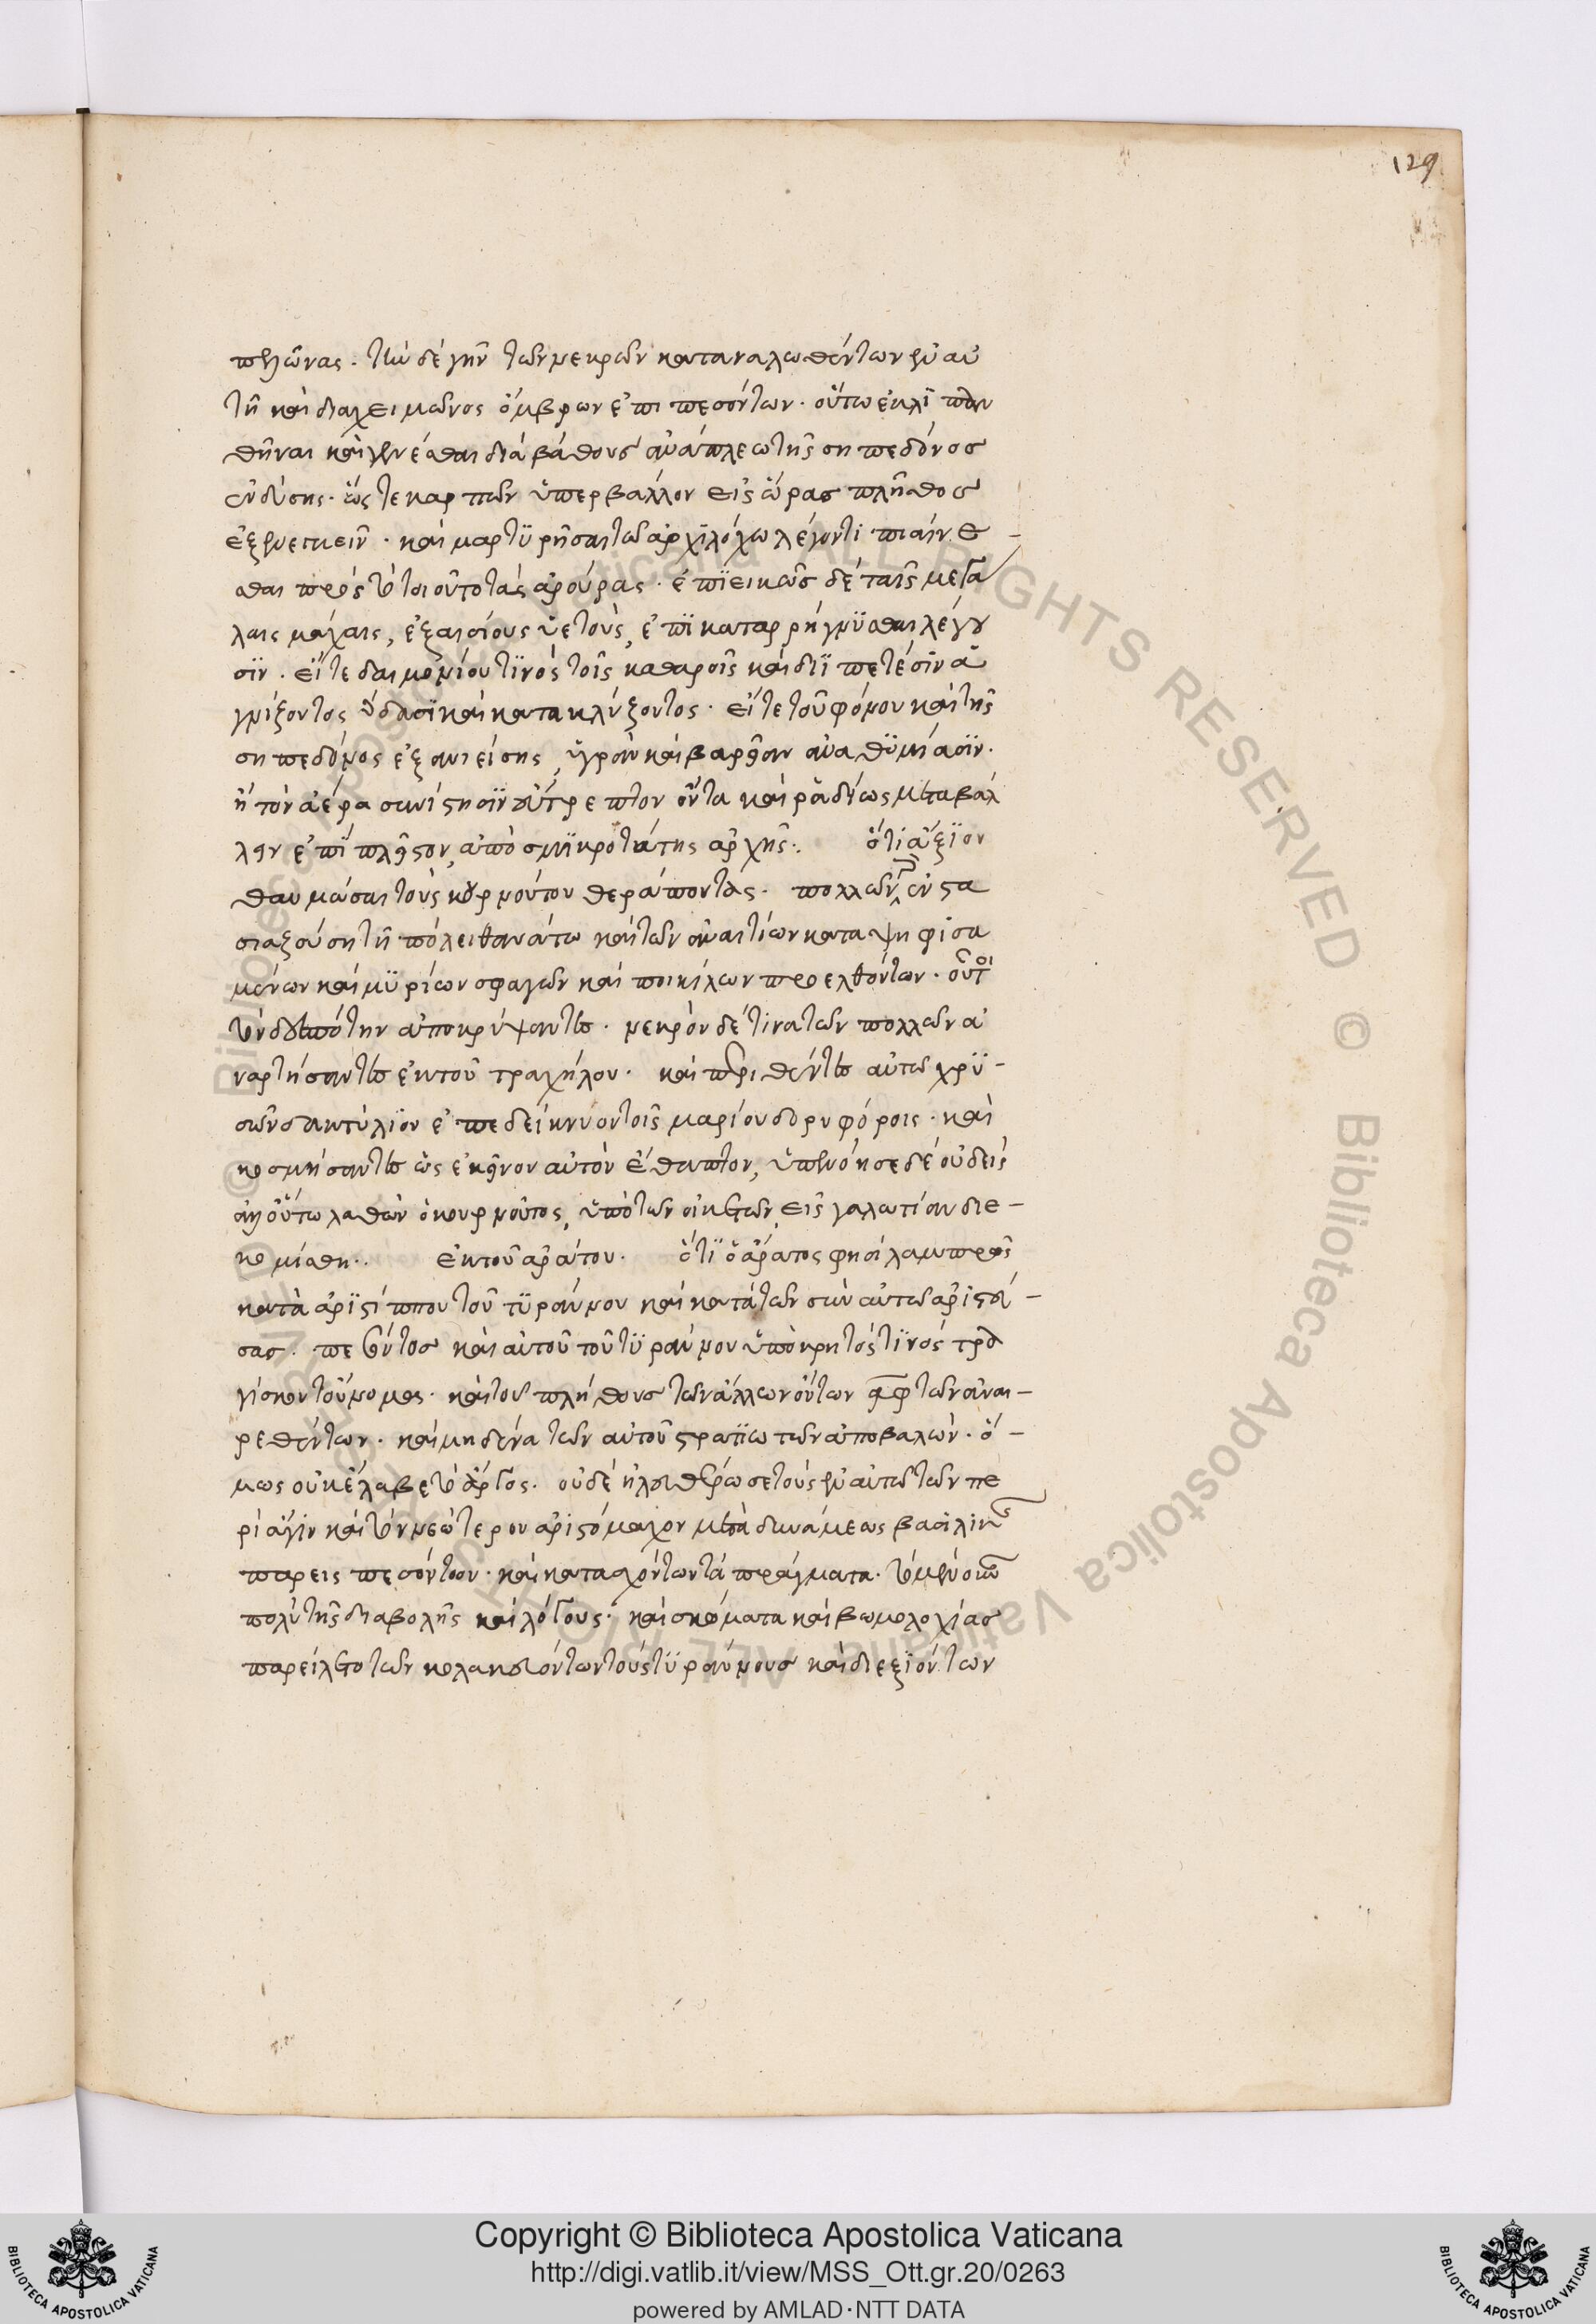 129
πελῶνας. τὴν δὲ γῆν τῶν νεκρῶν καταναλωθέντων ἐν αὐ
τῇ καὶ διαχειμῶνος ὄμβρων ἐπιπεσόντων. οὕτω ἐκλιπαν
θῆναι καὶ γενέσθαι διὰ βάθους ἀνάπλεω τῆς σηπεδόνος
ἐνδύσης. ὥς τε καρπῶν ὑπερβάλλον εἰς ὥρας πλῆθος
ἐξενεγκεῖν. καὶ μαρτϋρῆσαι τῶ ἀρχιλόχω λέγοντι πιαίνε
σθαι πρὸς τοιοῦτο τὰς ἀρούρας. ἐπϊεικῶς δὲ ταῖς μεγά
λαις μάχαις, ἐξαισίους ὑετοὺς, ἐπϊκαταρρήγνϋσθαι λέγου
σϊν. εἴτε δαιμονίου τϊνὸς τοῖς καθαροῖς καὶ διϊπετέσϊν ἁ
γνίζοντος ὕδασϊ καὶ κατακλύζοντος. εἴτε τοῦ φόνου καὶ τῆς
σηπεδόνος ἐξανιείσης, ὑγρὰν καὶ βαρεῖαν ἀναθϋμίασϊν.
ἣ τὸν ἀέρα συνίστησϊν εὔτρεπτον ὄντα καὶ ῥαδίως μεταβάλ
λειν ἐπὶ πλεῖστον, ἀπὸ σμϊκροτάτης ἀρχῆς. ὅτι ἄξϊον
θαυμάσαι τοὺς κουρνούτου θεράποντας. πολλῶν ἐν στα
σιαζούση τῆ πόλει θανάτω καὶ τῶν ἀναιτίων καταψηφισα
μένων καὶ μϋρίων σφαγῶν καὶ ποικίλων προελθόντων. οὗτοι
τὸν δεσπότην ἀποκρύψαντες. νεκρὸν δέ τινα τῶν πολλῶν ἀ
ναρτήσαντες ἐκ τοῦ τραχήλου. καὶ περιθέντες αὐτῶ χρϋ-
σοῦν δακτύλϊον ἐπεδείκνυον τοῖς μαρίου δορυφόροις. καὶ
κοσμήσαντες ὡς ἐκεῖνον αὐτὸν ἔθαπτον, ὑπενόησε δὲ οὐδεὶς
ἀλλ οὕτω λαθὼν ὁ κουρνοῦτος, ὑπὸ τῶν οἰκετῶν, εἰς γαλατίαν διε-
κομίσθη.. ἐκ τοῦ ἀράτου. ὅτϊ ὁ ἄρατος φησὶ λαμπρῶς
κατὰ ἀρϊστίππου τοῦ τϋράννου καὶ κατὰ τῶν σὺν αὐτῶ ἀριστεύ-
σας. πεσόντος καὶ αὐτοῦ τοῦ τϋράννου ὑπὸ κρητός τϊνός τρα
γίσκου τοὔνομα. καὶ τοῦ πλήθους τῶν ἄλλων ὄντων ͵αφ τῶν ἀναι-
ρεθέντων. καὶ μηδένα τῶν αὐτοῦ στρατϊωτῶν ἀποβαλών. ὅ-
μως οὐκ ἔλαβε τὸ ἄργος. οὐδὲ ἠλευθέρωσε τοὺς ἐν αὐτῶ τῶν πε
ρὶ ἀγίαν καὶ τὸν νεώτερον ἀριστόμαχον μετὰ δυνάμεως βασιλικῆς
παρεισπεσόντων. καὶ κατασχόντων τὰ πράγματα. τὸ μὲν οὖν
πολὺ τῆς διαβολῆς καὶ λόγους. καὶ σκώματα καὶ βωμολοχίας
παρείλετο τῶν κολακευόντων τοὺς τϋράννους καὶ διεξϊόντων
Copyright © Biblioteca Apostolica Vaticana
http://digi.vatlib.it/view/MSS_Ott.gr.20/0263
powered by AMLAD·NTT DATA